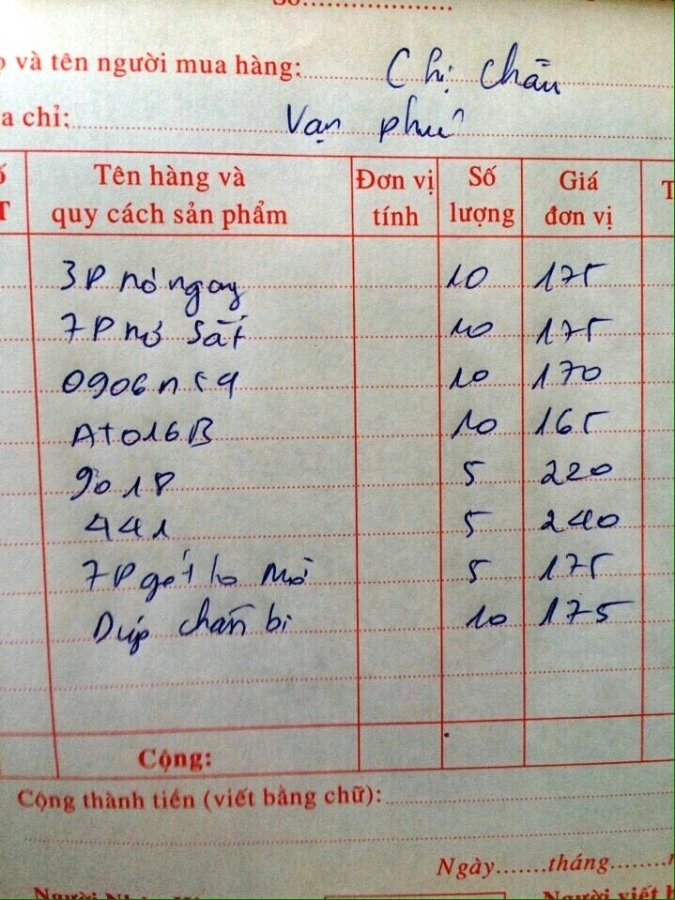 Số
và tên người mua hàng: Chị Chân
a chỉ: Vạn phúc
Tên hàng và quy cách sản phẩm Đơn vị tính Số lượng Giá đơn vị T
3P nơ ngay 10 175
7P nơ sắt 10 175
0906 10 170
A+016B 10 165
9018 5 220
441 5 240
7P gót 5 175
Dúp chân bi 10 175
Cộng:
Cộng thành tiền (viết bằng chữ):
Ngày.......tháng........
Người viết